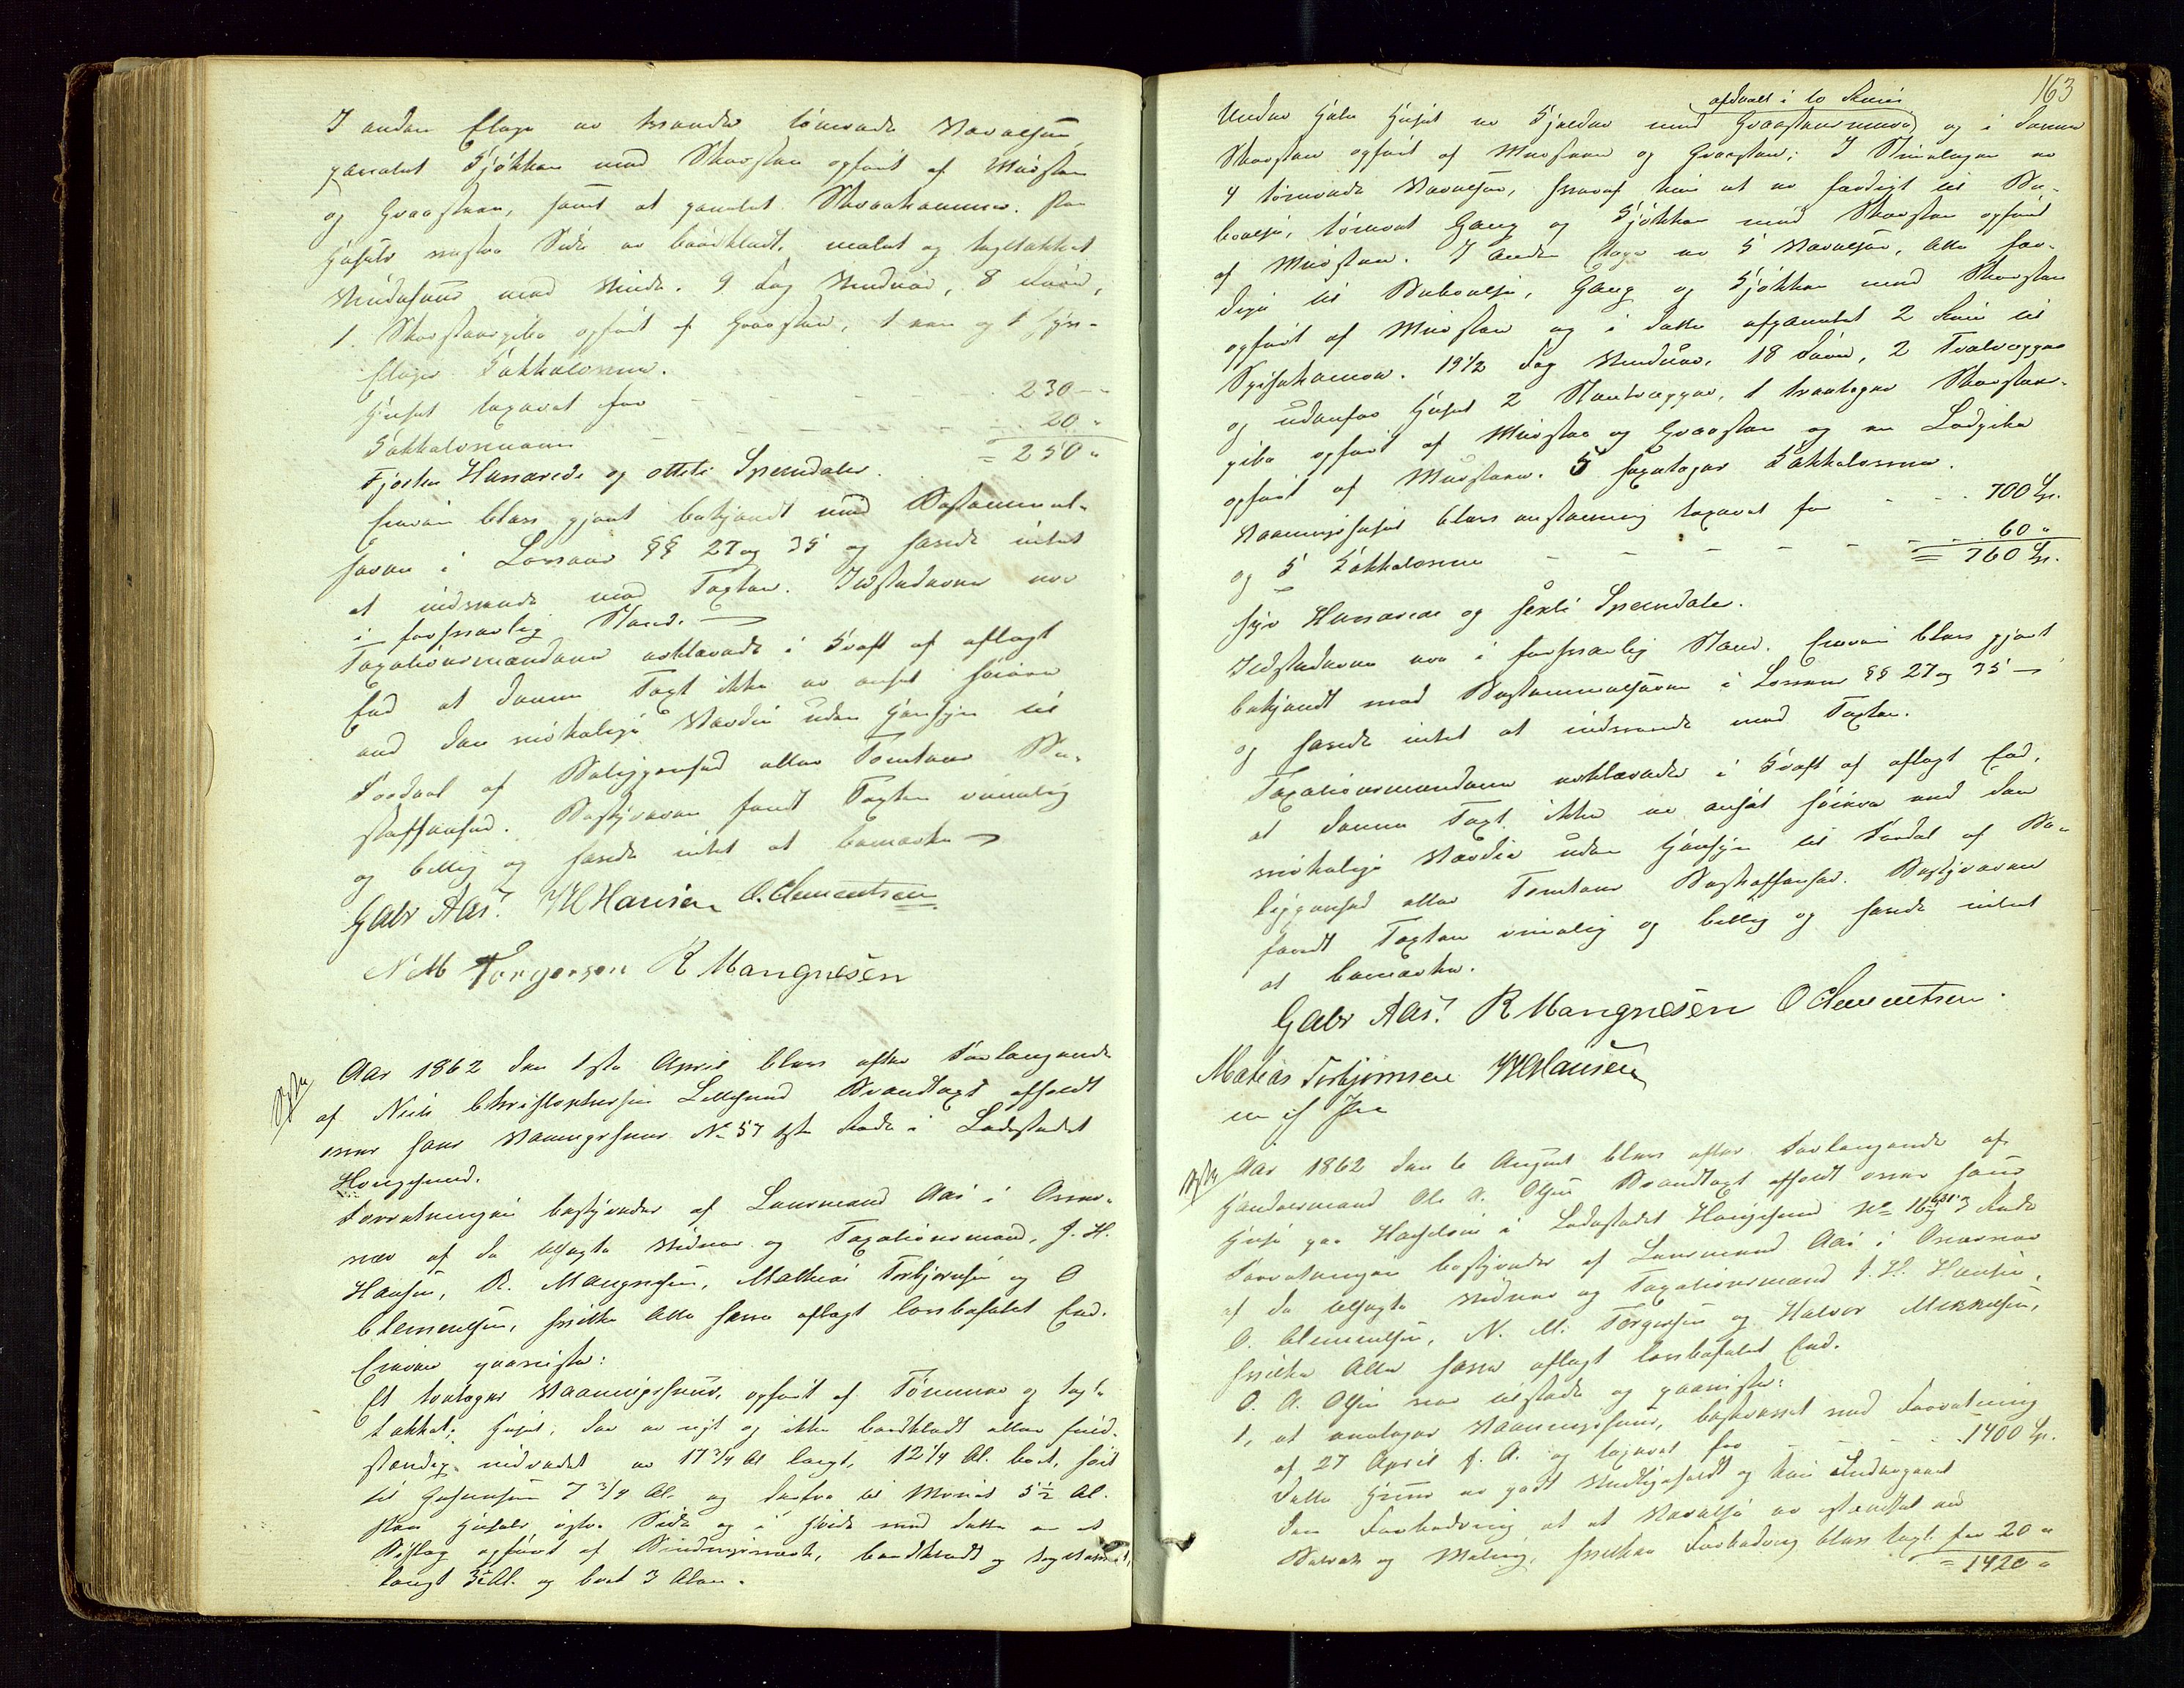 I anden Etage er trende tømrede Værelser,
panelet Kjøkken med Skorsten opført af Mursten
og Graasteen, samt et panelet Spisekammer. Paa
Husets vestre Side er bordklædt, malet og tagstakket
Vindusuur med Vindu. 9 Fag Vinduer, 8 Døre,
1. Skorstenspibe opført af Graasteen, 1 een og 1 fiir-
Etages Kakkelovne.
Huset taxeret for - - - - 230 -
Kakkelovnene - - - - 20 "
= 250 "
Fjorten Hundrede og otteti Speciedaler.
Eieren blev gjort bekjendt med Bestemmel-
serne i Lovens §§ 27 og 35 og havde intet
at indvende mod Taxten. Ildstederne var
i forsvarlig Stand.
Taxationsmændene erklærede i Kraft af aflagt
Eed at denne Taxt ikke er ansat høiere
end den virkelige Værdie uden Hensyn til
Fordeel af Beliggenhed eller Tomtens Be-
skaffenhed. Bestyreren fandt Taxten rimelig
og billig og havde intet at bemærke
Gabr Aas. JHHansen O. Clementsen
N M Torgersen R Mangnesen
Aar 1862 den 1ste April blev efter Forlangende
af Niels Christophersen Lillesund Brandtaxt afholdt
over hans Vaaningshuus No 57 1ste Rode i Ladestedet
Haugesund.
Forretningen bestyredes af Lensmand Aas i Overvær
af de Vidner og Taxationsmænd, J. H.
Hansen, R. Mangnesen, Mathias Torbjørnsen og O
Clementsen, hvilke Alle have aflagt lovbefalet Eed.
Eieren paaviste:
Et toetages Vaaningshuus, opført af Tømmer og tagste
takket; Huset, der er nyt og ikke bordklædt eller fuld-
stændig indredet er 17 3/4 Al langt, 12 1/4 Al. bredt, høit
til Gesimsen 7 3/4 Al. og derfra til Mønet 5 1/2 Al.
Paa Husets østre Side og i Høide med dette er et
Bislag opført af Bindingsværk, bordklædt og tagsteenst,
langt 3 1/2 Al. og bredt 3 Alen.
163
Under hele Huset er Kjelder med Graasteensmure afdeelt i to Rum og i denne
Skorsten opført af Mursteen og Graasten; I Stueetagen er
4 tømrede Værelser, hvoraf kun et er færdigt til Be-
boelse, tømret Gang og Kjøkken med Skorsten opført
af Mursten. I anden Etage er 5 Værelser, alle fær-
dige til Beboelse, Gang og Kjøkken med Skorsten
opført af Mursten og i dette afpanelet 2 Rum til
Spisekamer. 19 1/2 Fag Vinduer, 18 Døre, 2 Trætrapper
og udenfor Huset 2 Steentrapper, 1 treetages Skorsteens-
pibe opført af Mursteen og Graasten og en Ladpibe
opført af Murstene. 5 toetages Kakkelovne.
Vaaningshuset blev anstændig taxeret for - - - 700 Sp.
og 5 Kakkelovne - - - - - 60 "
= 760 Sp.
Syv Hundrede og sexti Speciedaler.
Ildstederne var i forsvarlig Stand. Eieren blev gjort
bekjendt med Bestemmelserne i Lovens §§ 27 og 35
og havde intet at indvende mod Taxten.
Taxationsmændene erklærede i Kraft af aflagt Eed,
at denne Taxt ikke er ansat høiere end den
virkelige Værdie uden Hensyn til Fordel af Be-
liggenhed eller Tomtens Beskaffenhed. Bestyreren
fandt Taxten rimelig og billig og havde intet
at bemærke.
Gabr Aas. R Mangnesen O Clementsen.
Matias Torbjørnsen JHHansen
m if Pen
Aar 1862 den 6 August blev efter Forlangende af
Handelsmand Ole A. Olsen Brandtaxt afholdt over hans
Huse paa Hasseløen i Ladestedet Haugesund No 16 3 Rode
Forretningen bestyredes af Lensmand Aas i Overvær
af de Vidner og Taxationsmænd J. H. Hansen,
O. Clementsen, N. M. Torgersen og Halvor Mikkelsen,
hvilke Alle have aflagt lovbefalet Eed.
O. A. Olsen var tilstede og paaviste:
1, et toetages Vaaningshuus, beskrevet ved Forretning
af 27 April f. A. og taxeret for - - - 1400 Sp.
Dette Huus er godt vedligeholdt og kun undergaaet
den Forbedring at et Værelse er udstyret med
Betræk og Maling, hvilken Forbedring blev taxt. for 20 "
= 1420 "